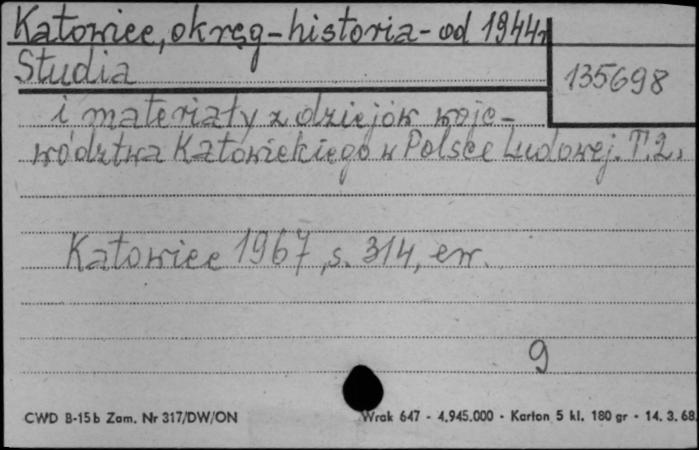 Katowice, okręg-historia-od 1944r
Studia
135698
i materiały z dziejów woje-
wództwa Katowickiego w Polsce Ludowej. T.2.
Katowice 1967, s. 314, err.
9
CWD B-15b Zam. Nr 317/DW/ON
Wrak 647 - 4.945.000 - Karton 5 kl. 180 gr - 14. 3. 68.